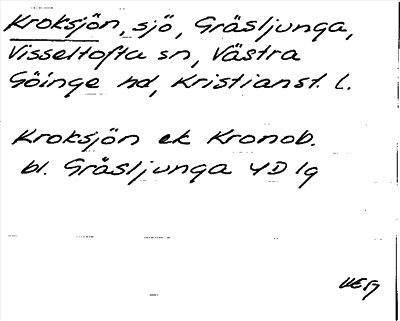 Kroksjön, sjö, Gräsljunga,
Visseltofta sn, Västra
Göinge hd, Kristianst. l.
Kroksjön ek Kronob.
bl. Gräsljunga 4D1g